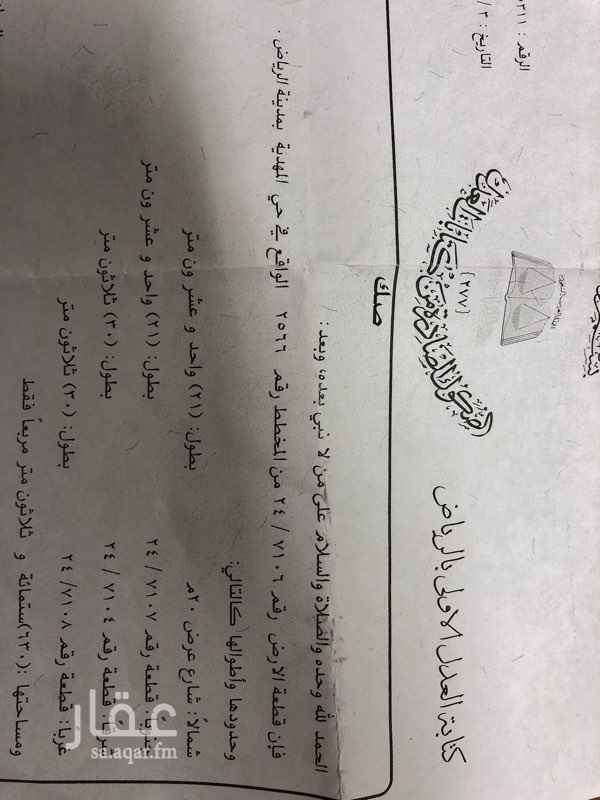 الرقم : ٣١١
التاريخ : ٣ /
كتابة العدل الاولى بالرياض
(٢٧٧)
صك
الحمد لله وحده والصلاة والسلام على من لا نبي بعده، وبعد:
فإن قطعة الارض رقم ٧١٠٦ / ٢٤ من المخطط رقم ٢٥٦٦ الواقع في حي المهدية بمدينة الرياض .
وحدودها وأطوالها كالتالي:
شمالاً: شارع عرض ٢٠م بطول: (٢١) واحد و عشرون متر
جنوباً: قطعة رقم ٧١٠٧ / ٢٤ بطول: (٢١) واحد و عشرون متر
شرقاً: قطعة رقم ٧١٠٤ / ٢٤ بطول: (٣٠) ثلاثون متر
غرباً: قطعة رقم ٧١٠٨ / ٢٤ بطول: (٣٠) ثلاثون متر
ومساحتها :(٦٣٠)ستمائة و ثلاثون متر مربعاً فقط
عقار
sa.aqar.fm